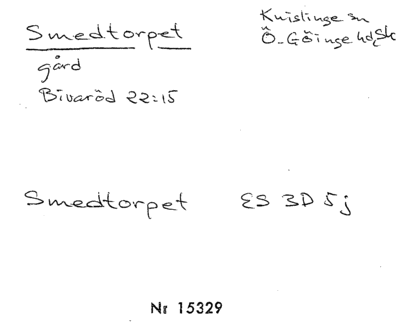 Smedtorpet
gård
Bivaröd 22:15
Knislinge sn
Ö-Göinge hd, Sk
Smedtorpet ES 3D 5j
Nr 15329